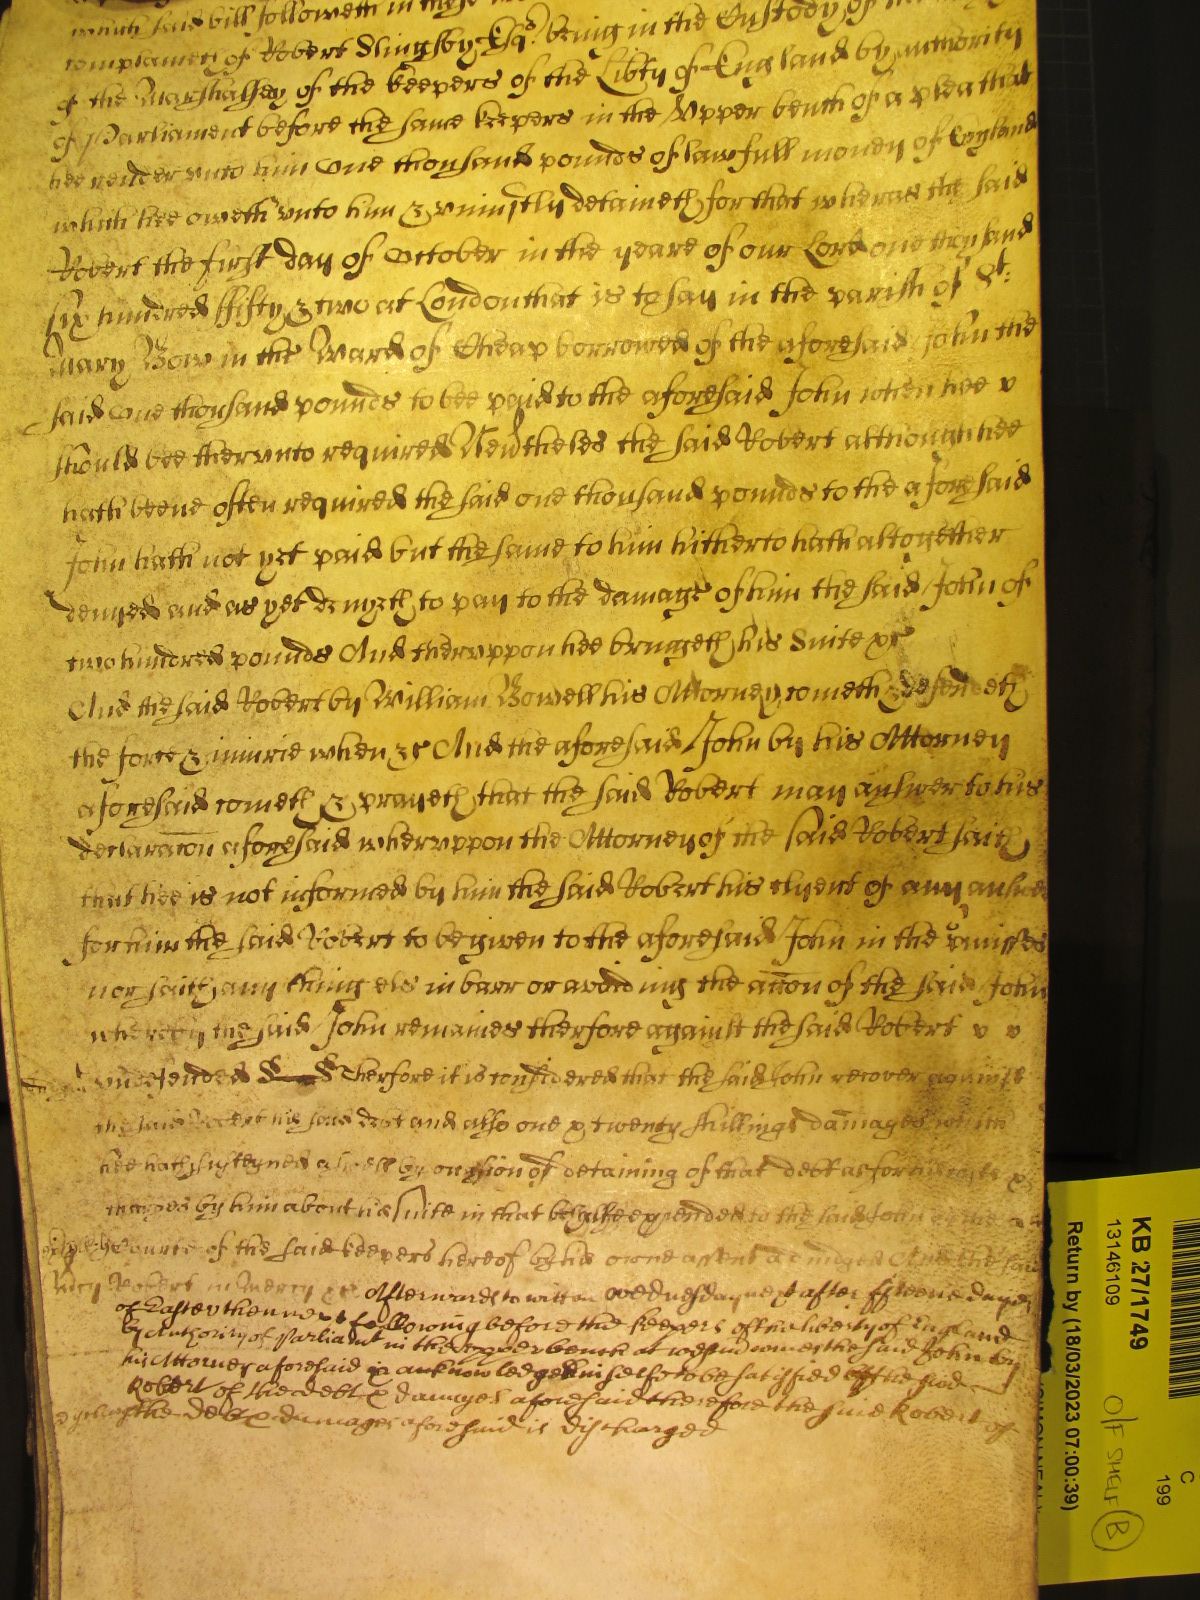 which said bill followeth in these
complaineth of Robert Slingsby Esqr. being in the Custody of
of the Marshalsey of the keepers of the Libty of England by authority
of Parliament before the same keepers in the Vpper bench of a plea that
hee render vnto him One thousand pounds of lawfull money of England
which hee oweth vnto him & vniustly detaineth for that wheras the said
Robert the first day of October in the yeare of our Lord one thousand
six hundred ffifty & two at London that is to say in the parish of St.
Mary Bow in the Ward of Cheap borrowed of the aforesaid John the
said One thousand pounds to bee paid to the aforesaid John when hee v
should bee thervnto required Nevtheles the said Robert although hee
hath beene often required the said one thousand pounds to the aforesaid
John hath not yet paid but the same to him hitherto hath altogether
denyed and as yet denyeth to pay to the damage of him the said John of
two hundred pounds And thervppon hee bringeth his Suite &c
And the said Robert by William Bowell his Attorney cometh & defendeth
the force & iniurie when &c And the aforesaid John by his Attorney
aforesaid cometh & prayeth that the said Robert may answer to his
declaracon aforesaid whervppon the Attorney of the said Robert saith
that hee is not informed by him the said Robert his clyent of any answer
for him the said Robert to be given to the aforesaid John in the pmisses
nor saith any thing els in barr or avoiding the accon of the said John
whereby the said John remaines therfore against the said Robert v v
vndefended Therfore it is considered that the said John recover against
the said Robert his said debt and also one & twenty shillings damages which
hee hath susteyned aswell by occasion of detaining of that debt as for his costs &
charges by him about his suite in that behalfe expended to the said John by the
Courte of the said keepers hereof by his owne assent adiudged And the said
Mercy Robert in Mercy &c Afterwards to witt on wednesday next after fifteene dayes
of Easter then next following before the keepers of the liberty of England
by Authority of Parliamt in the upper bench at westm comes the said John by
his Attorney aforesaid & acknowledgeth himselfe to be satisfied by the said
Robert of the debt & damages aforesaid therefore the said Robert of
the debt & damages aforesaid is discharged
KB 27/1749
13146109
Return by (18/03/2023 07:00:39)
O/F SHELF B
C
199